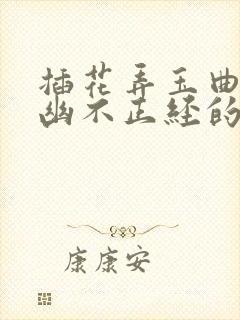 插花弄玉曲
幽不正经的
康康安